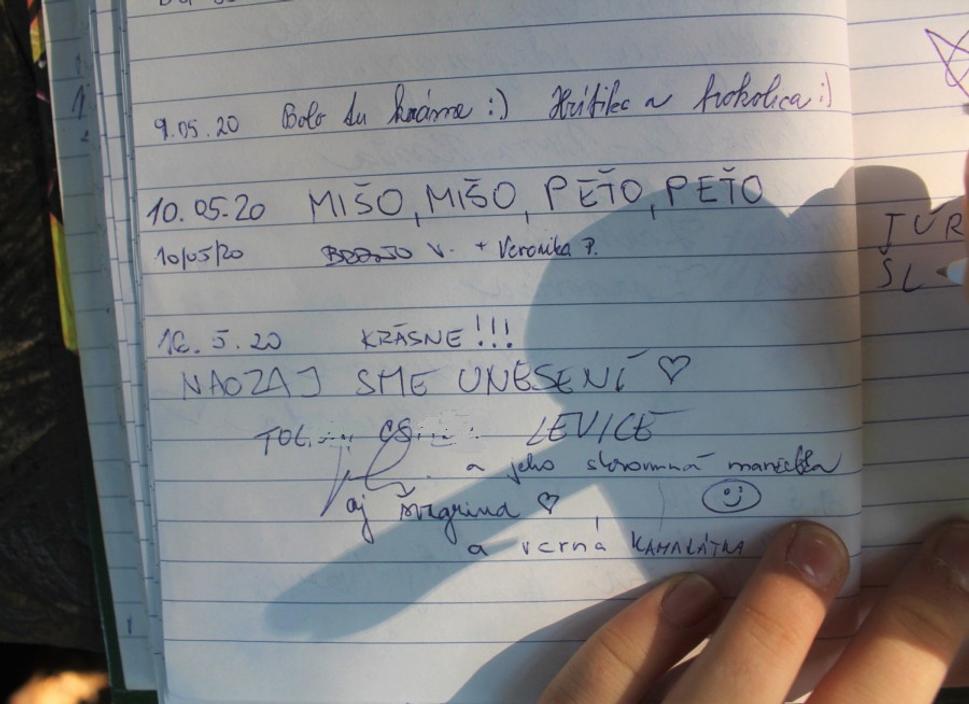 9.05.20 Bolo tu krásne :) Krítik a :)
10.05.20 MIŠO, MIŠO, PEŤO, PEŤO
10/05/20 V. + Veronika P.
16.5.20 KRÁSNE!!!
NAOZAJ SME UNESENÍ ♡
LEVICE
a jeho skromná manželka
aj švagriná ♡
a verná KAMARÁTKA
JÚR
SL